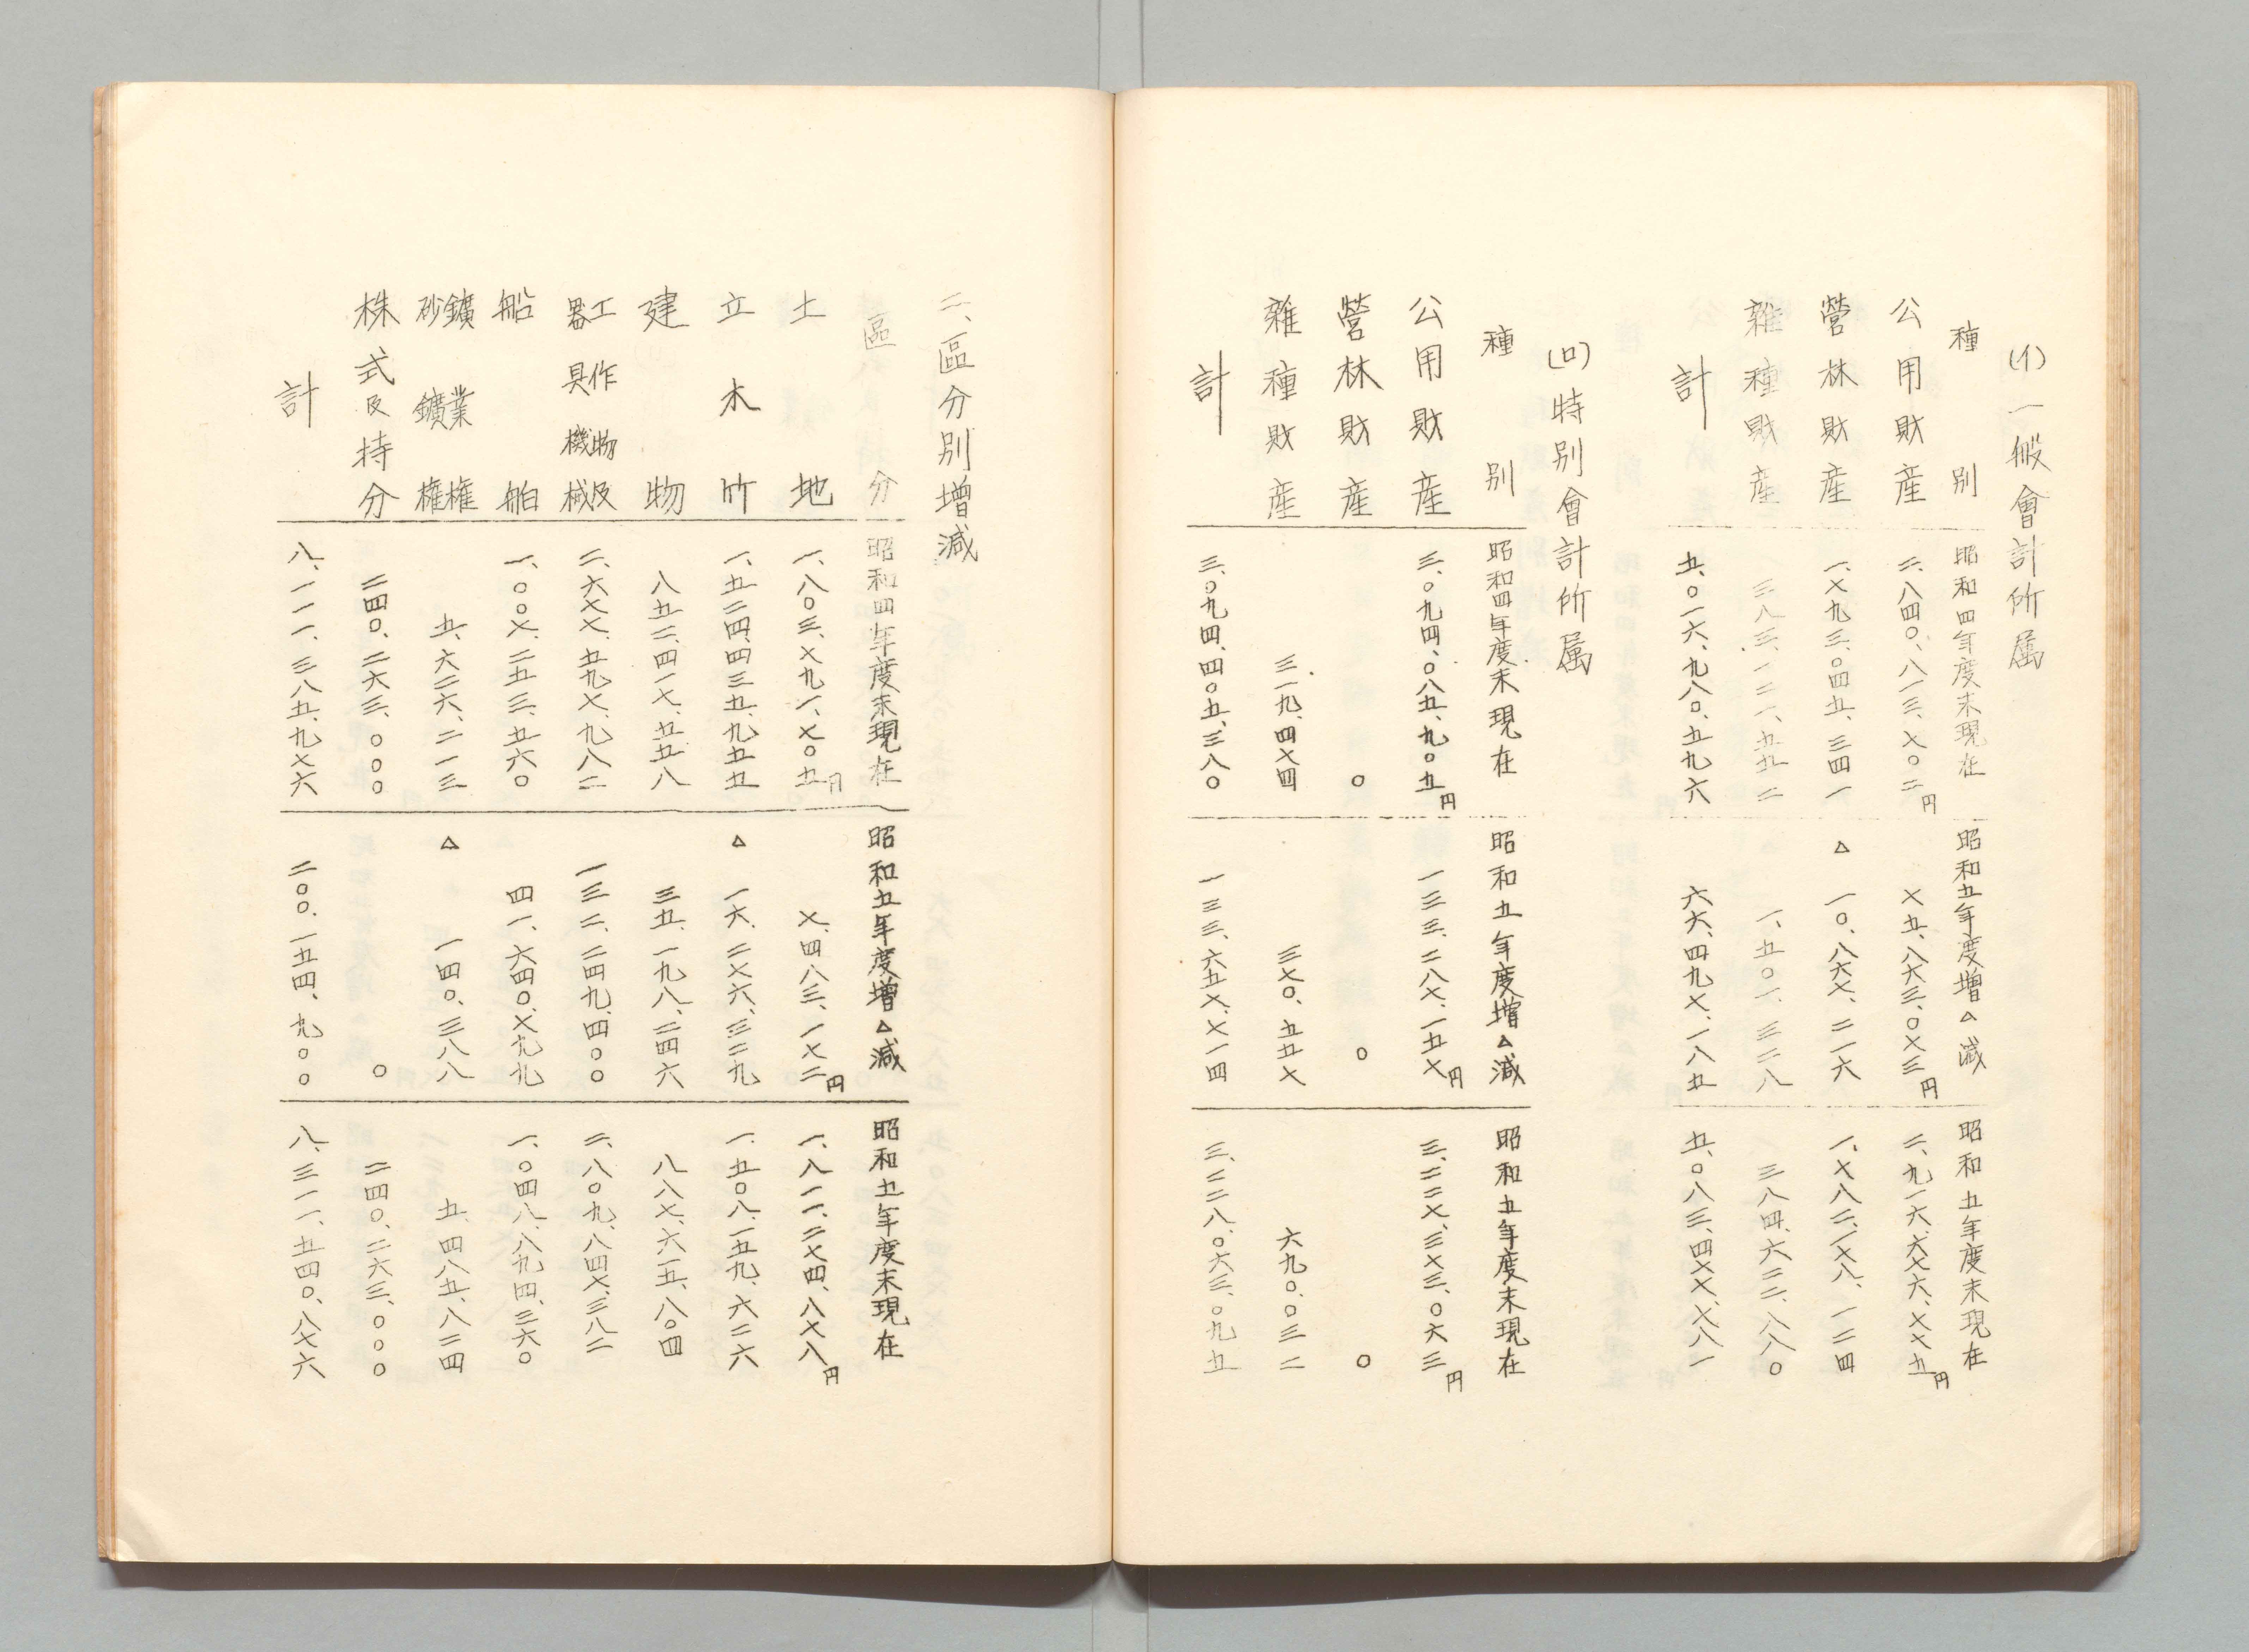 (イ)一般會計所属
種別 昭和四年度末現在 昭和五年度増△減 昭和五年度末現在
公用財産 二、八四〇、八一三、七〇二円 七五、八六三、〇七三円 二、九一六、六七六、七七五円
營林財産 一、七九三、〇四五、三四一 △一〇、八六七、二一六 一、七八二、一七八、一二四
雑種財産 三八三、一二一、五五二 一、五〇一、三二八 三八四、六二二、八八〇
計 五、〇一六、九八〇、五九六 六六、四九七、一八五 五、〇八三、四七七、七八一
(ロ)特別會計所属
種別 昭和四年度末現在 昭和五年度増△減 昭和五年度末現在
公用財産 三、〇九四、〇八五、九〇五円 一三三、二八七、一五七円 三、二二七、三七三、〇六三円
營林財産 〇 〇 〇
雑種財産 三一九、四七四 三七〇、五五七 六九〇、〇三二
計 三、〇九四、四〇五、三八〇 一三三、六五七、七一四 三、二二八、〇六三、〇九五
二、區分別増減
區分 昭和四年度末現在 昭和五年度増△減 昭和五年度末現在
土地 一、八〇三、七九一、七〇五円 七、四八三、一七二円 一、八一一、二七四、八七八円
立木竹 一、五二四、四三五、九五五 △一六、二七六、三二九 一、五〇八、一五九、六二六
建物 八五二、四一七、五五八 三五、一九八、二四六 八八七、六一五、八〇四
工作物及器具機械 二、六七七、五九七、九八二 一三二、二四九、四〇〇 二、八〇九、八四七、三八二
船舶 一、〇〇七、二五三、五六〇 四一、六四〇、七九九 一、〇四八、八九四、三六〇
鑛業権砂鑛権 五、六二六、二一三 △一四〇、三八八 五、四八五、八二四
株式及持分 二四〇、二六三、〇〇〇 〇 二四〇、二六三、〇〇〇
計 八、一一一、三八五、九七六 二〇〇、一五四、九〇〇 八、三一一、五四〇、八七六